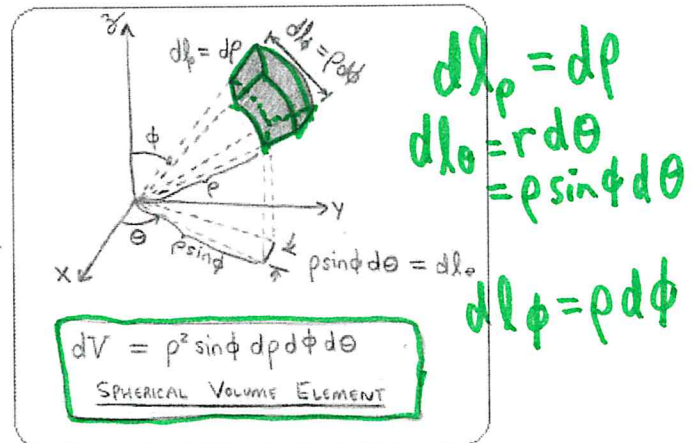 z
dlρ = dρ
dlφ = ρdφ
φ
ρ
y
θ
x
ρsinφ
ρsinφ dθ = dlθ
dV = ρ² sinφ dρ dφ dθ
SPHERICAL VOLUME ELEMENT
dlρ = dρ
dlθ = r dθ
= ρ sinφ dθ
dlφ = ρ dφ